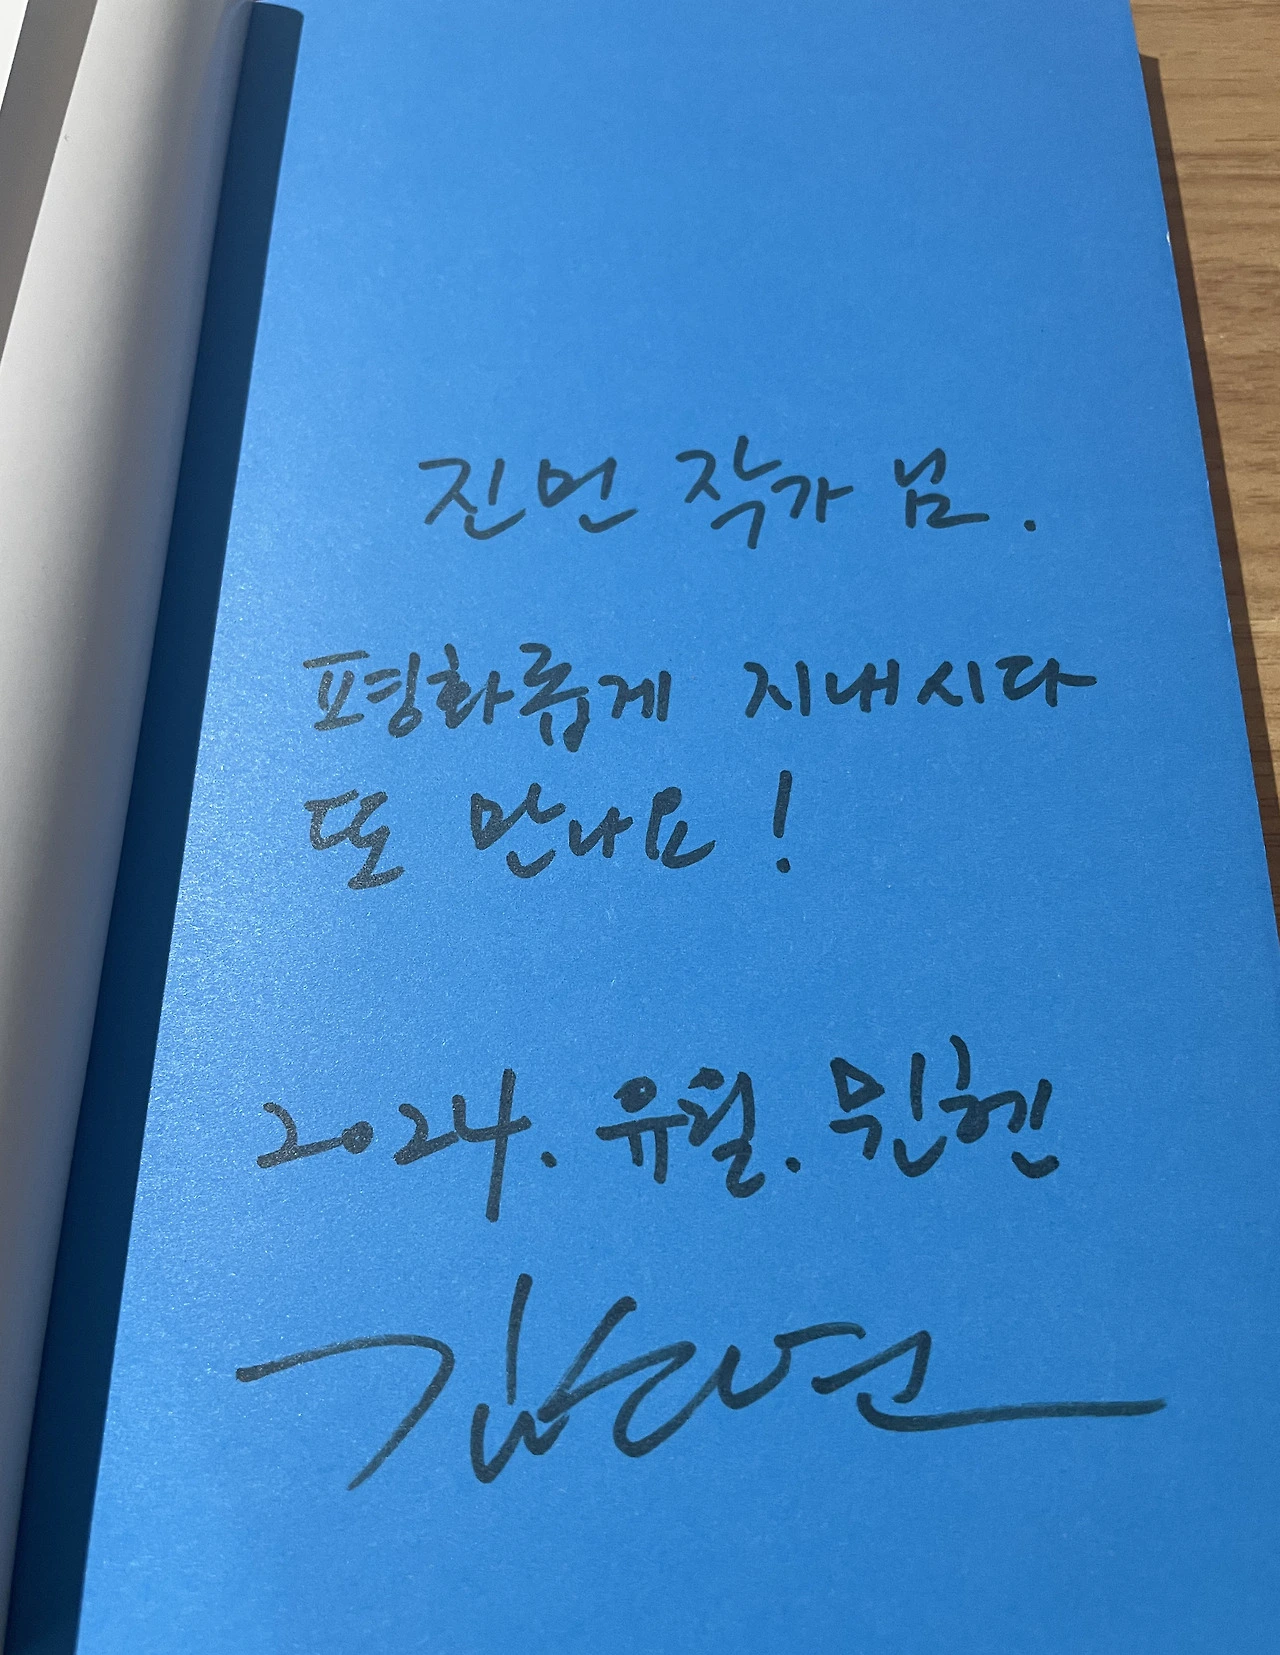 진먼 작가님.
평화롭게 지내시다
또 만나요!
2024. 유월. 뮌헨